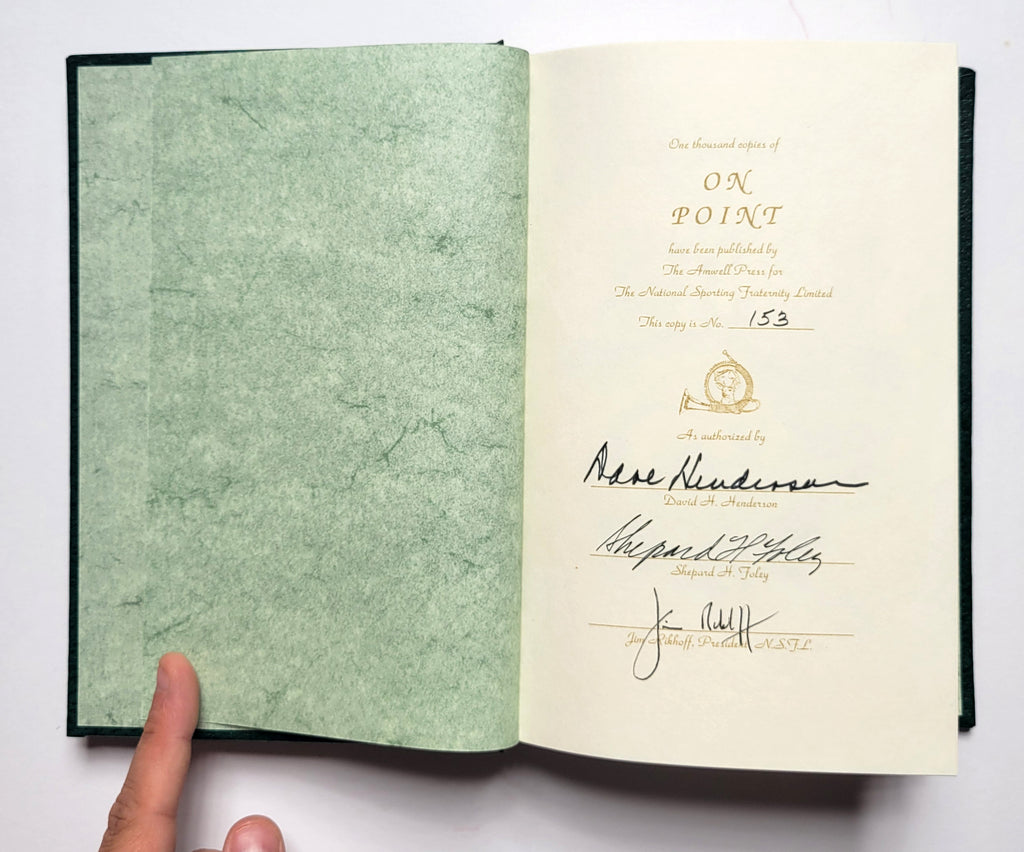 One thousand copies of
ON
POINT
have been published by
The Amwell Press for
The National Sporting Fraternity Limited
This copy is No. 153
As authorized by
Dave Henderson
David H. Henderson
Shepard H Foley
Shepard H. Foley
Jim Rikhoff
Jim Rikhoff, President, N.S.F.L.